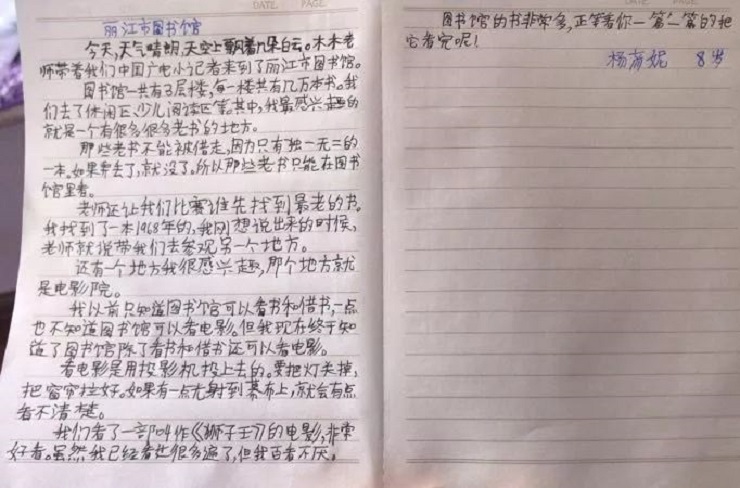 DATE PAGE
丽江市图书馆
今天,天气晴朗,天空上飘着几朵白云。木木老
师带着我们中国广电小记者来到了丽江市图书馆。
图书馆一共有3层楼,每一楼共有几万本书。我
们去了休闲区、少儿阅读区等。其中,我最感兴趣的
就是一个有很多很多老书的地方。
那些老书不能被借走,因为只有独一无二的
一本。如果弄丢了,就没了。所以那些老书只能在图书
馆里看。
老师还让我们比赛谁先找到最老的书。
我找到了一本1968年的,我刚想说出来的时候,
老师就说带我们去参观另一个地方。
还有一个地方我很感兴趣,那个地方就
是电影院。
我以前只知道图书馆可以看书和借书,一点
也不知道图书馆可以看电影。但我现在终于知
道了图书馆除了看书和借书还可以看电影。
看电影是用投影机投上去的。要把灯关掉,
把窗帘拦好。如果有一点光射到幕布上,就会有点
看不清楚。
我们看了一部叫作《狮子王》的电影,非常
好看。虽然我已经看过很多遍了,但我百看不厌。
DATE PAGE
图书馆的书非常多,正等着你一篇一篇的把
它看完呢!
杨 妮 8岁